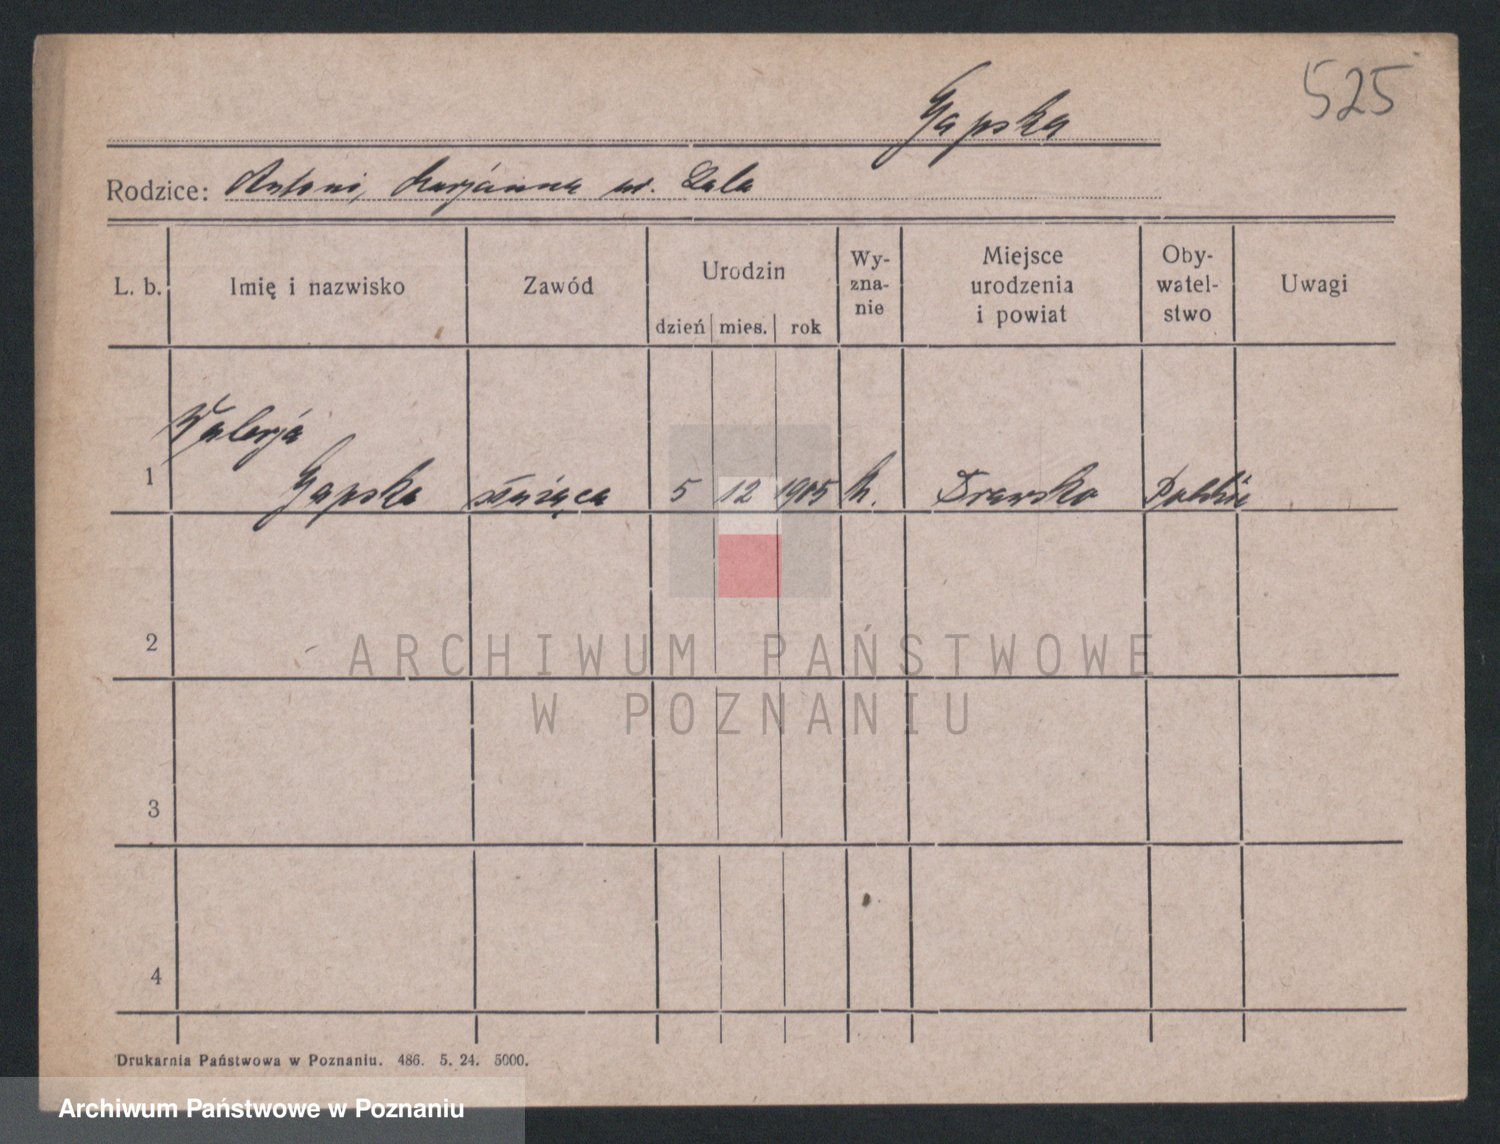 525
Gapska
Rodzice: Antoni, Marjanna ur. Lala
L. b. Imię i nazwisko Zawód Urodzin dzień mies. rok Wy-zna-nie Miejsce urodzenia i powiat Oby-watel-stwo Uwagi
Walerja
1 Gapska służąca 5 12 1905 k. Drawsko Polskie
2
ARCHIWUM PAŃSTWOWE
W POZNANIU
3
4
Drukarnia Państwowa w Poznaniu. 486. 5. 24. 5000.
Archiwum Państwowe w Poznaniu